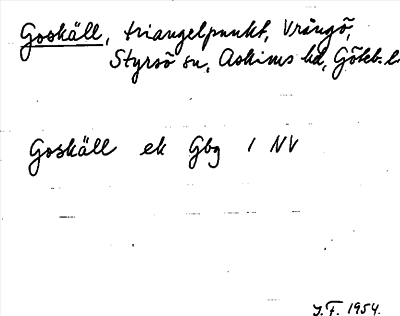 Goskäll, triangelpunkt, Vrångö,
Styrsö sn, Askims hd, Göteb. l.
Goskäll ek Gbg 1 NV
J.F. 1954.